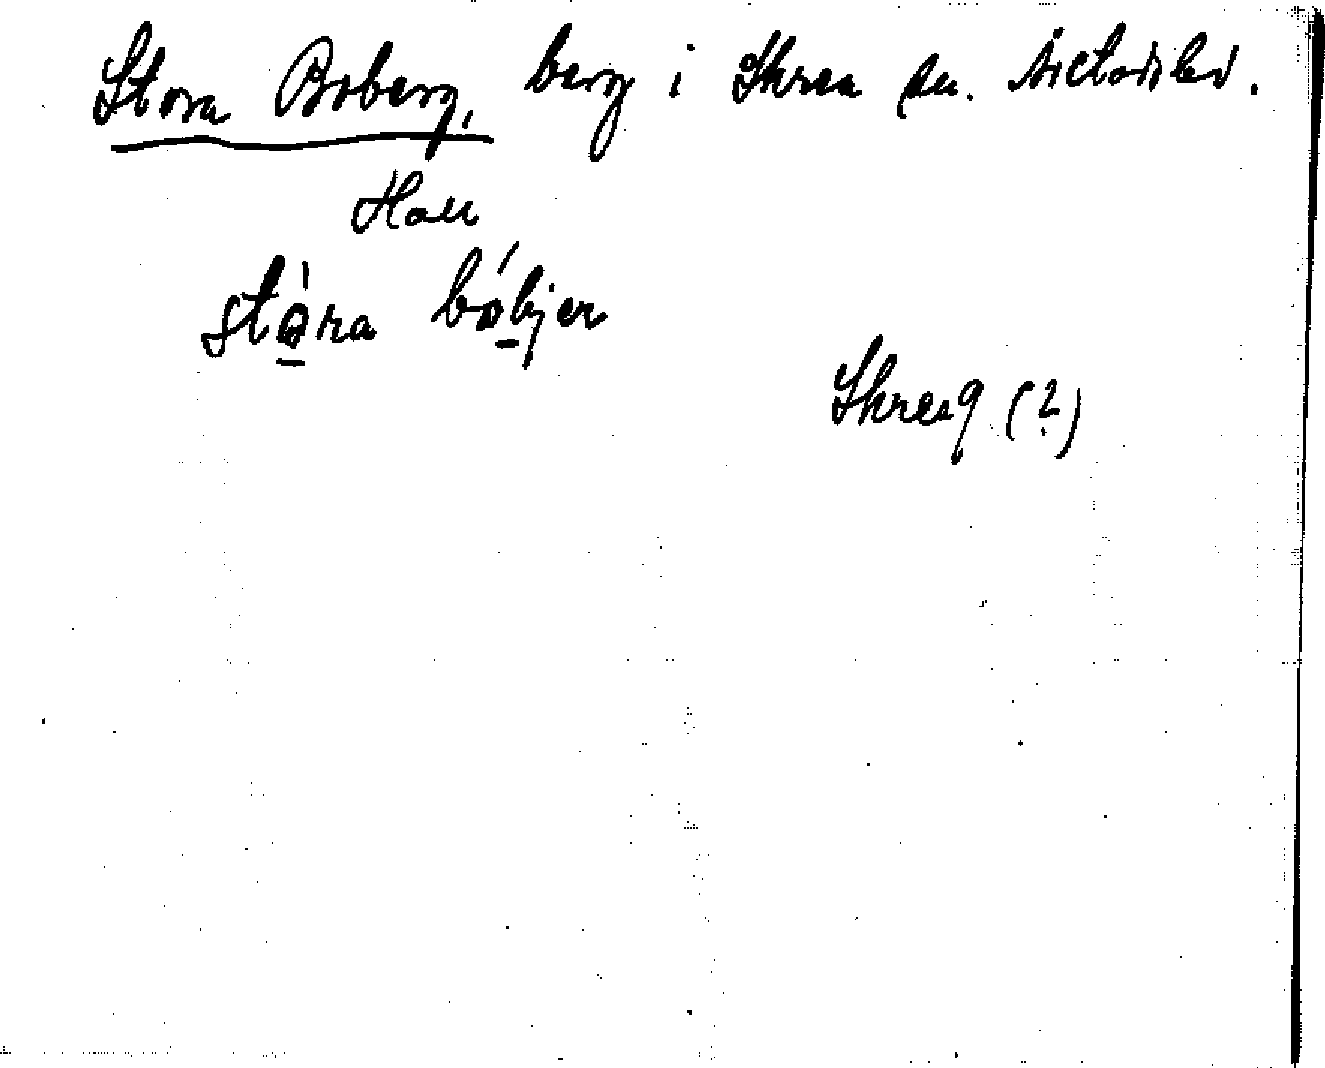 Stora Boberg, berg i Skrea sn. Årstads hd.
Hall
stò̱ra bó̱bjer
Skrea 9 (?)